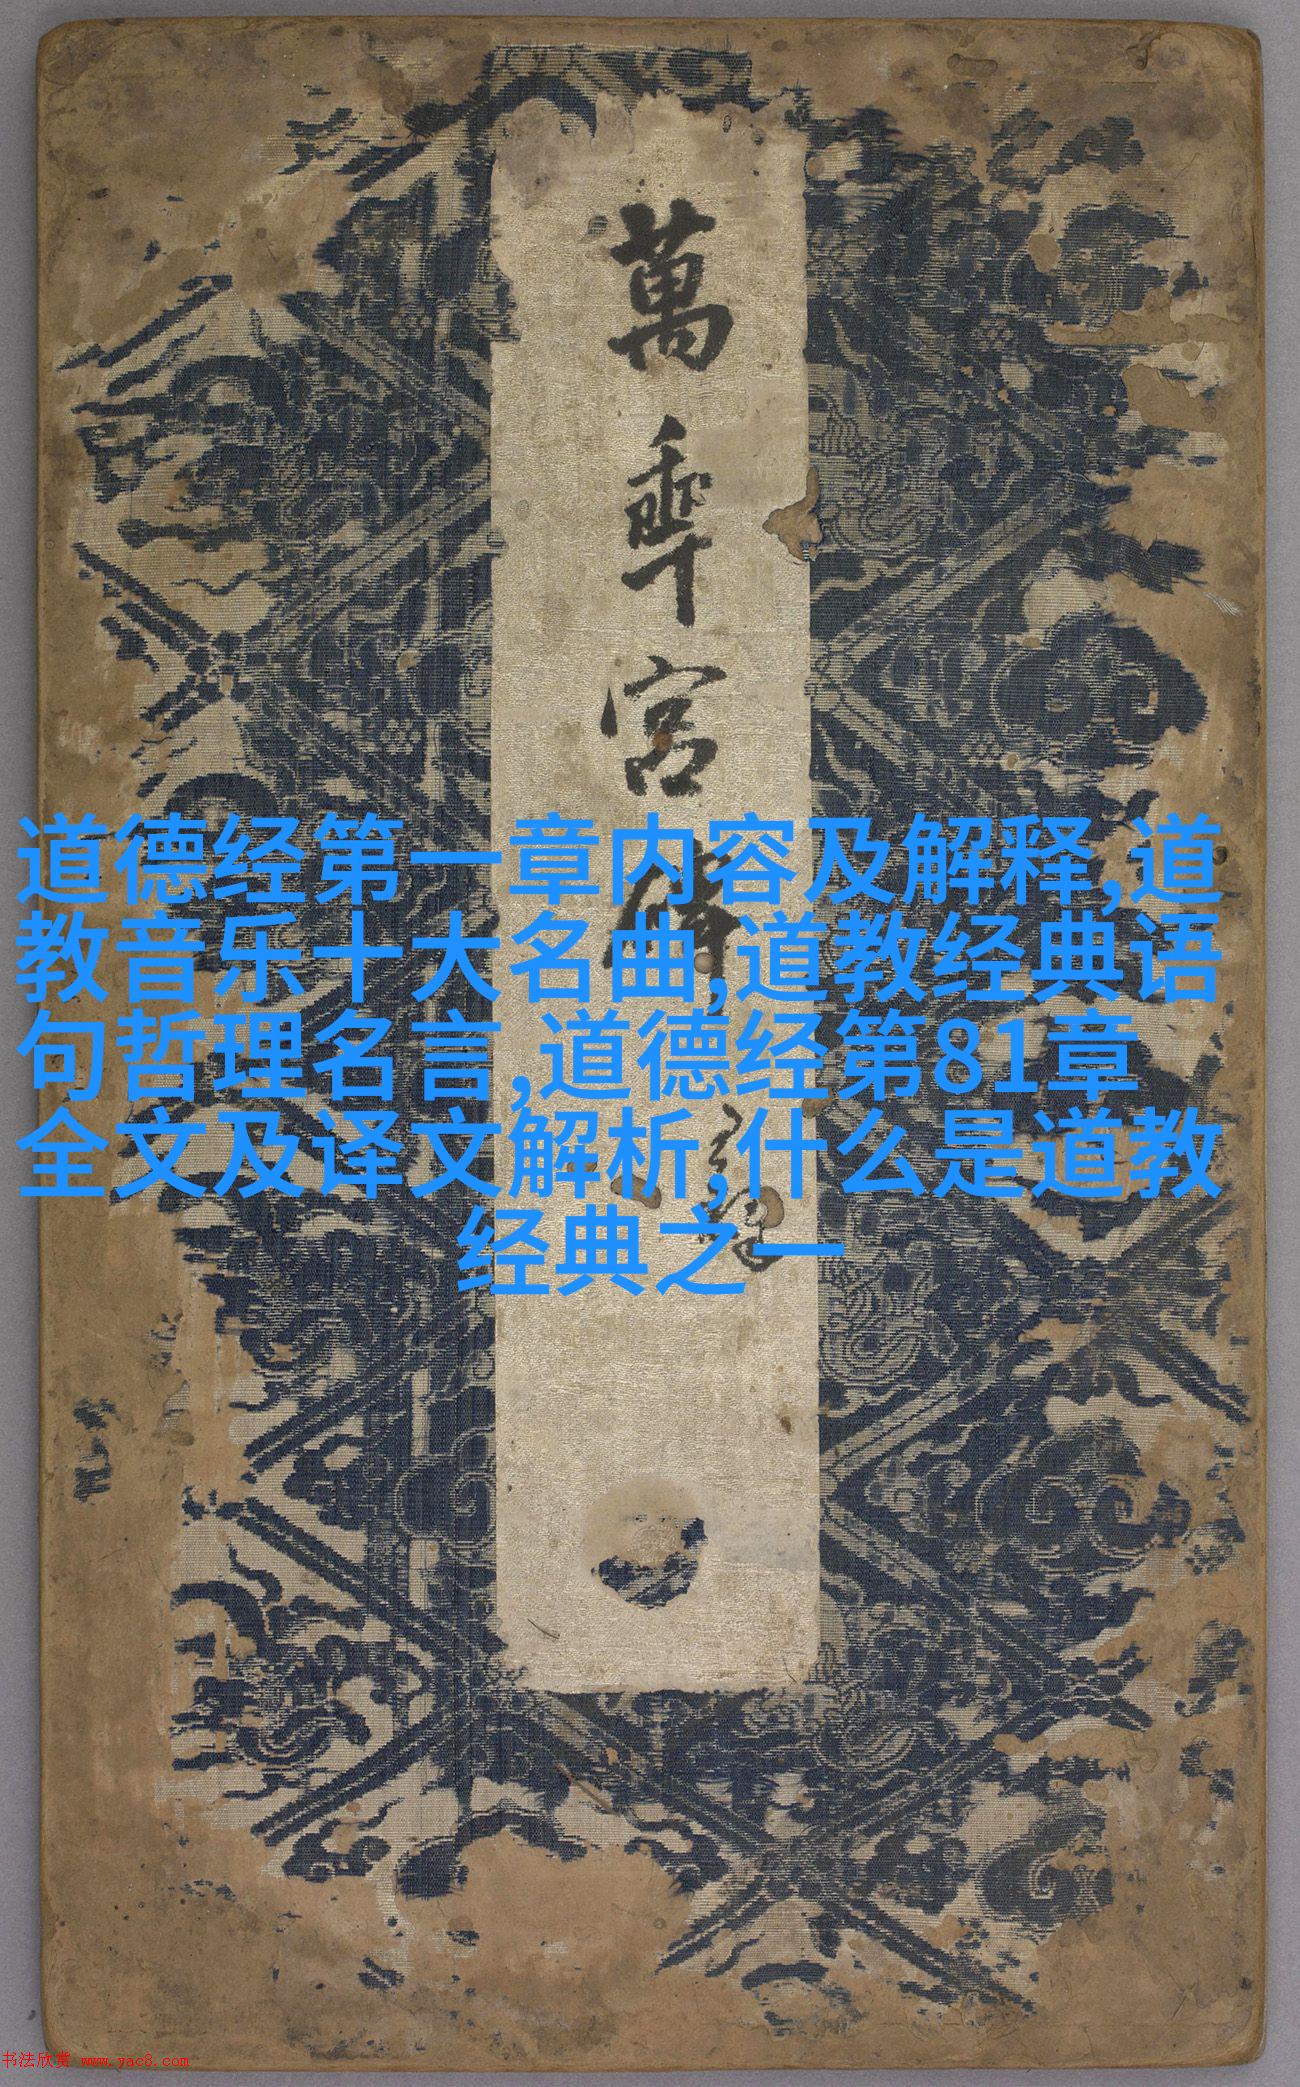 萬年宮
道德经第一章内容及解释,道
教音乐十大名曲,道教经典语
句哲理名言,道德经第81章
全文及译文解析,什么是道教
经典之一
书法欣赏 www.yac8.com